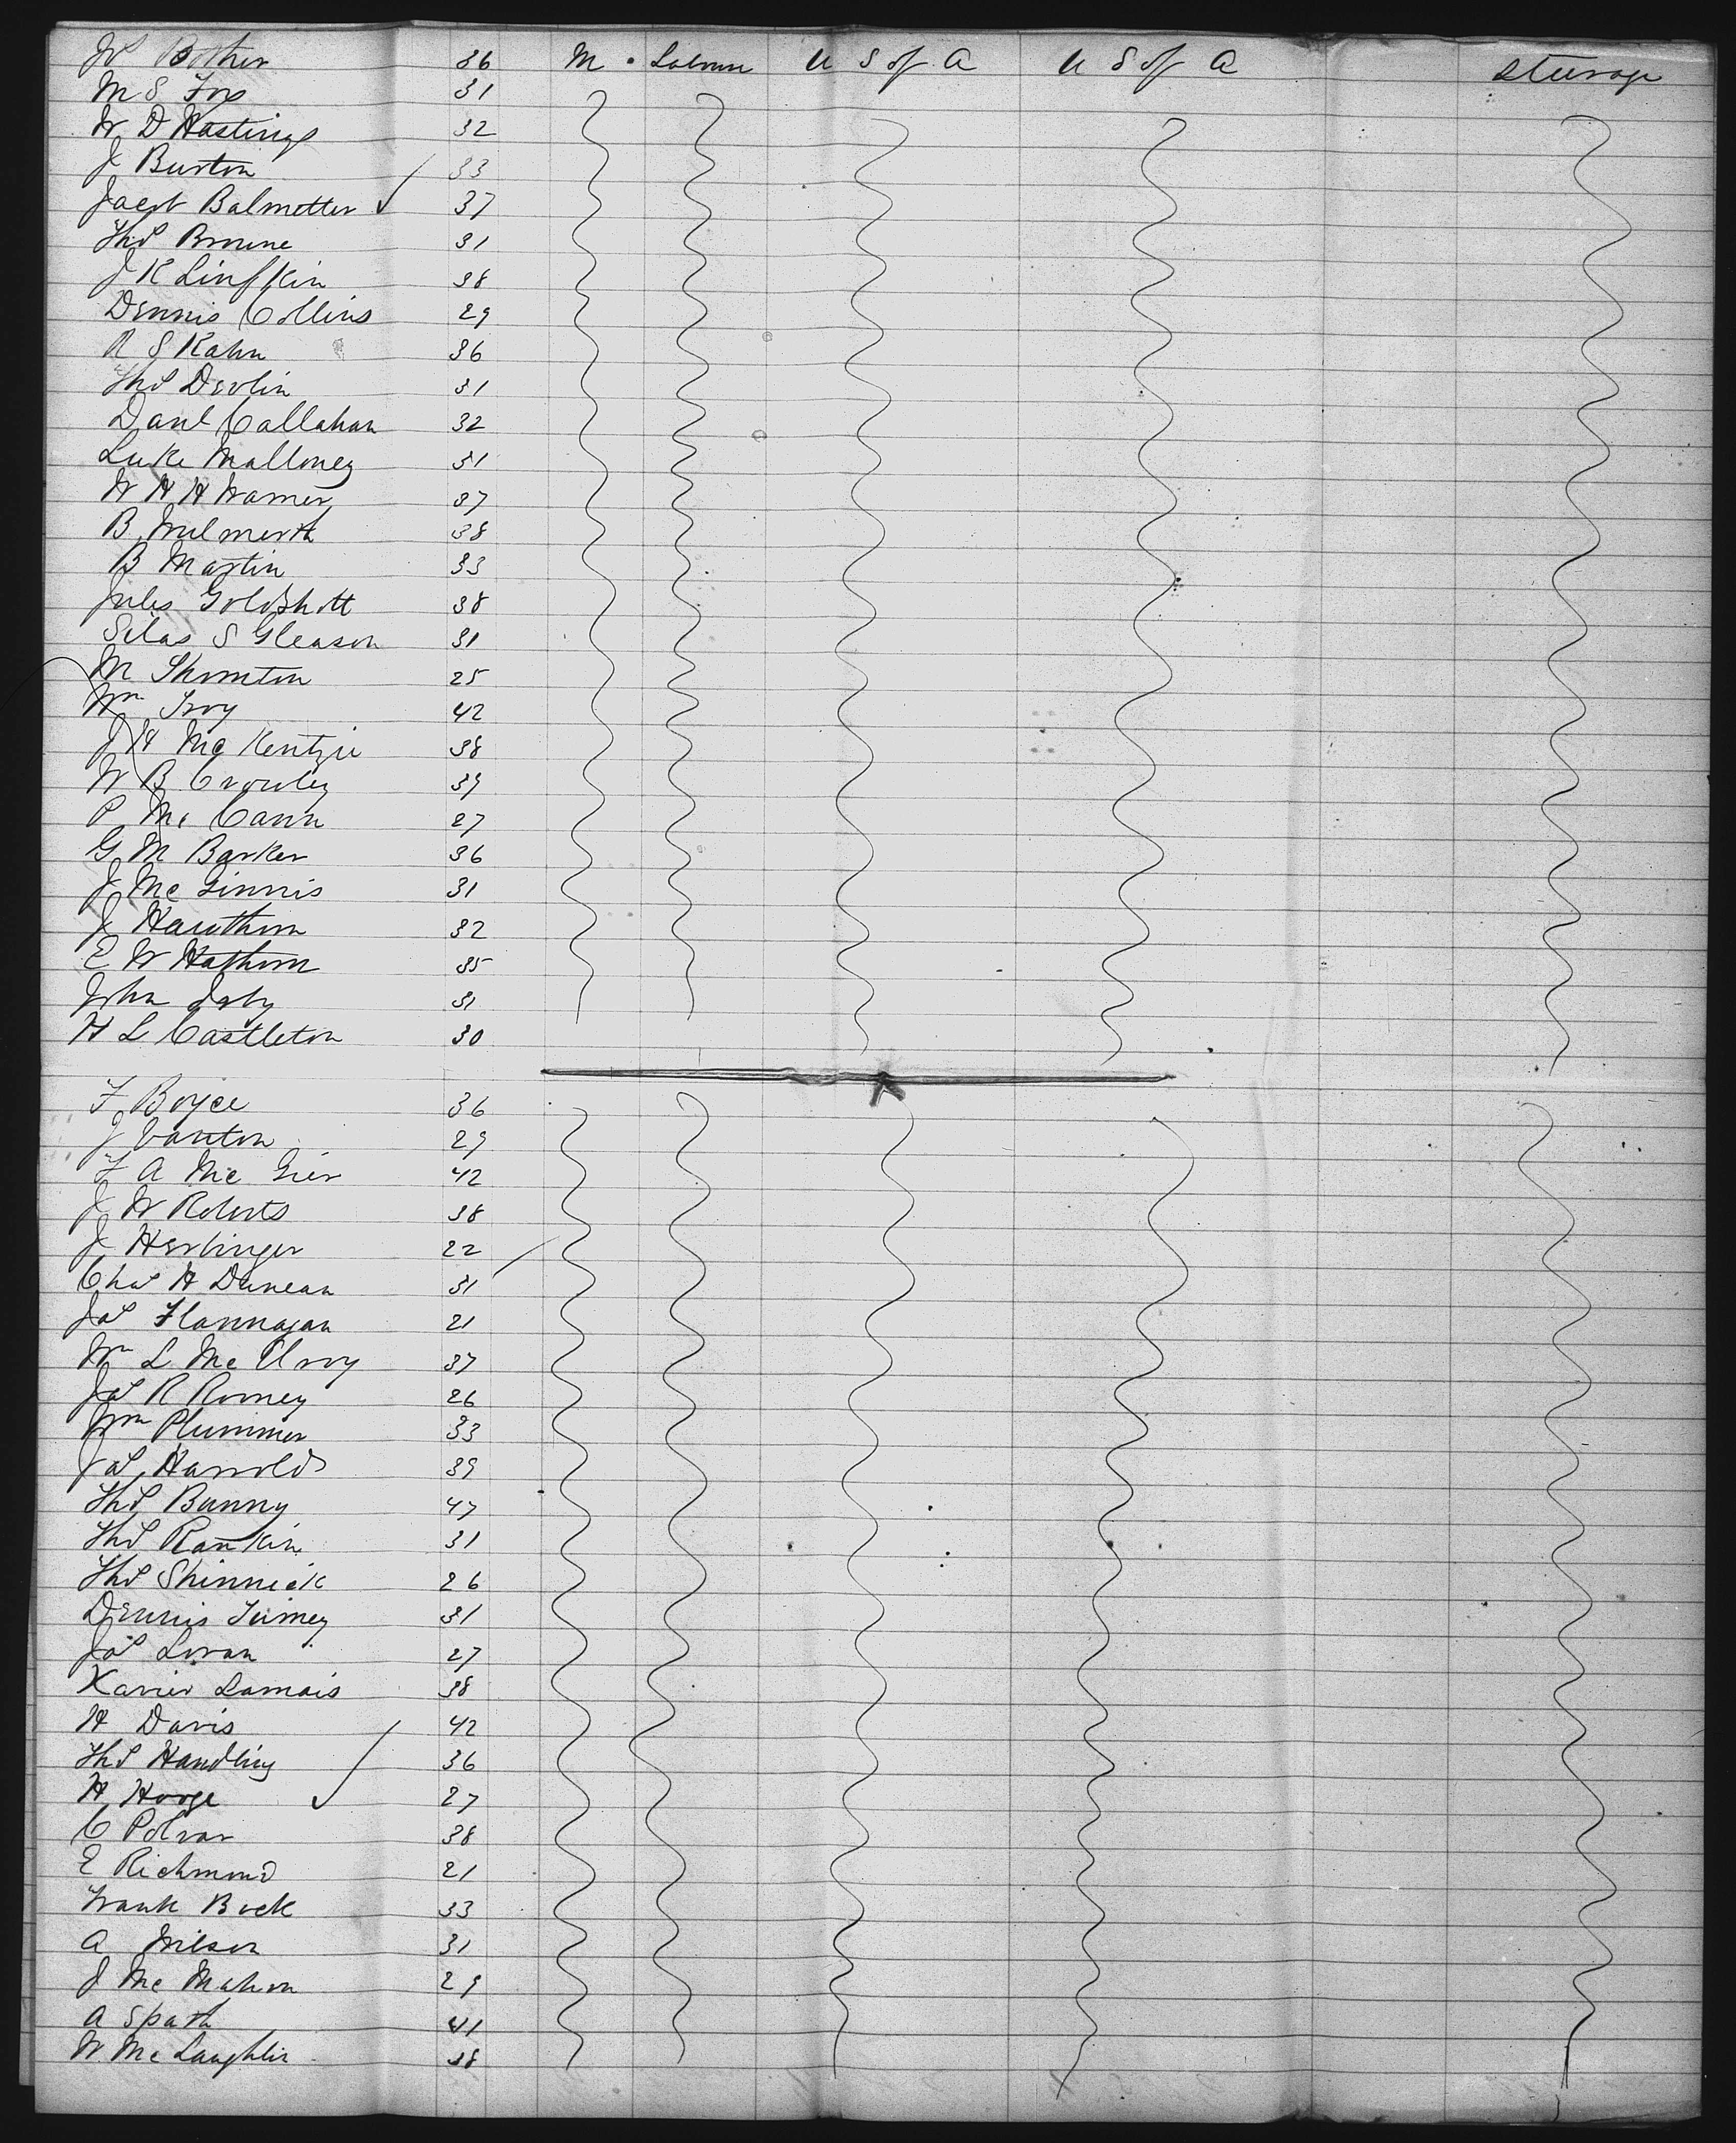 Jos Bother 36 M. Laborer U S of A U S of A Steerage
M S Fox 31
W D Hastings 32
J Burton 33
Jacob Balmetter 37
Thos Browne 31
J K Linfkin 38
Dennis Collins 29
R S Kahn 36
Thos Devlin 31
Danl Callahan 32
Luke Malloney 31
W H H Warner 37
B Wilmerth 38
B Martin 33
Jules Goldshott 38
Silas S Gleason 31
M Thornton 25
Wm Ivoy 42
J H McKentzie 38
W B Crowley 39
P McCann 27
G M Barker 36
J McGinnis 31
J Hawthorn 32
E W Hathorn 35
John 31
H L Castleton 30
F Boyce 36
J Canton 29
F A McGier 42
J W Roberts 38
J Herlinger 22
Chas H Duncan 31
Jas Flannagan 21
Wm L McElroy 37
Jas R Rooney 26
Wm Plummer 33
Jas Harrold 39
Thos Bunny 47
Thos Rankin 31
Thos Shinnick 26
Dennis Turney 31
Jas Loran 27
Xavier Lamais 38
H Davis 42
Thos Handling 36
H Hooge 27
C Polvar 38
E Richmond 21
Frank Bock 33
A Wilson 31
J McMahon 29
A Spath 41
W McLaughlin 38